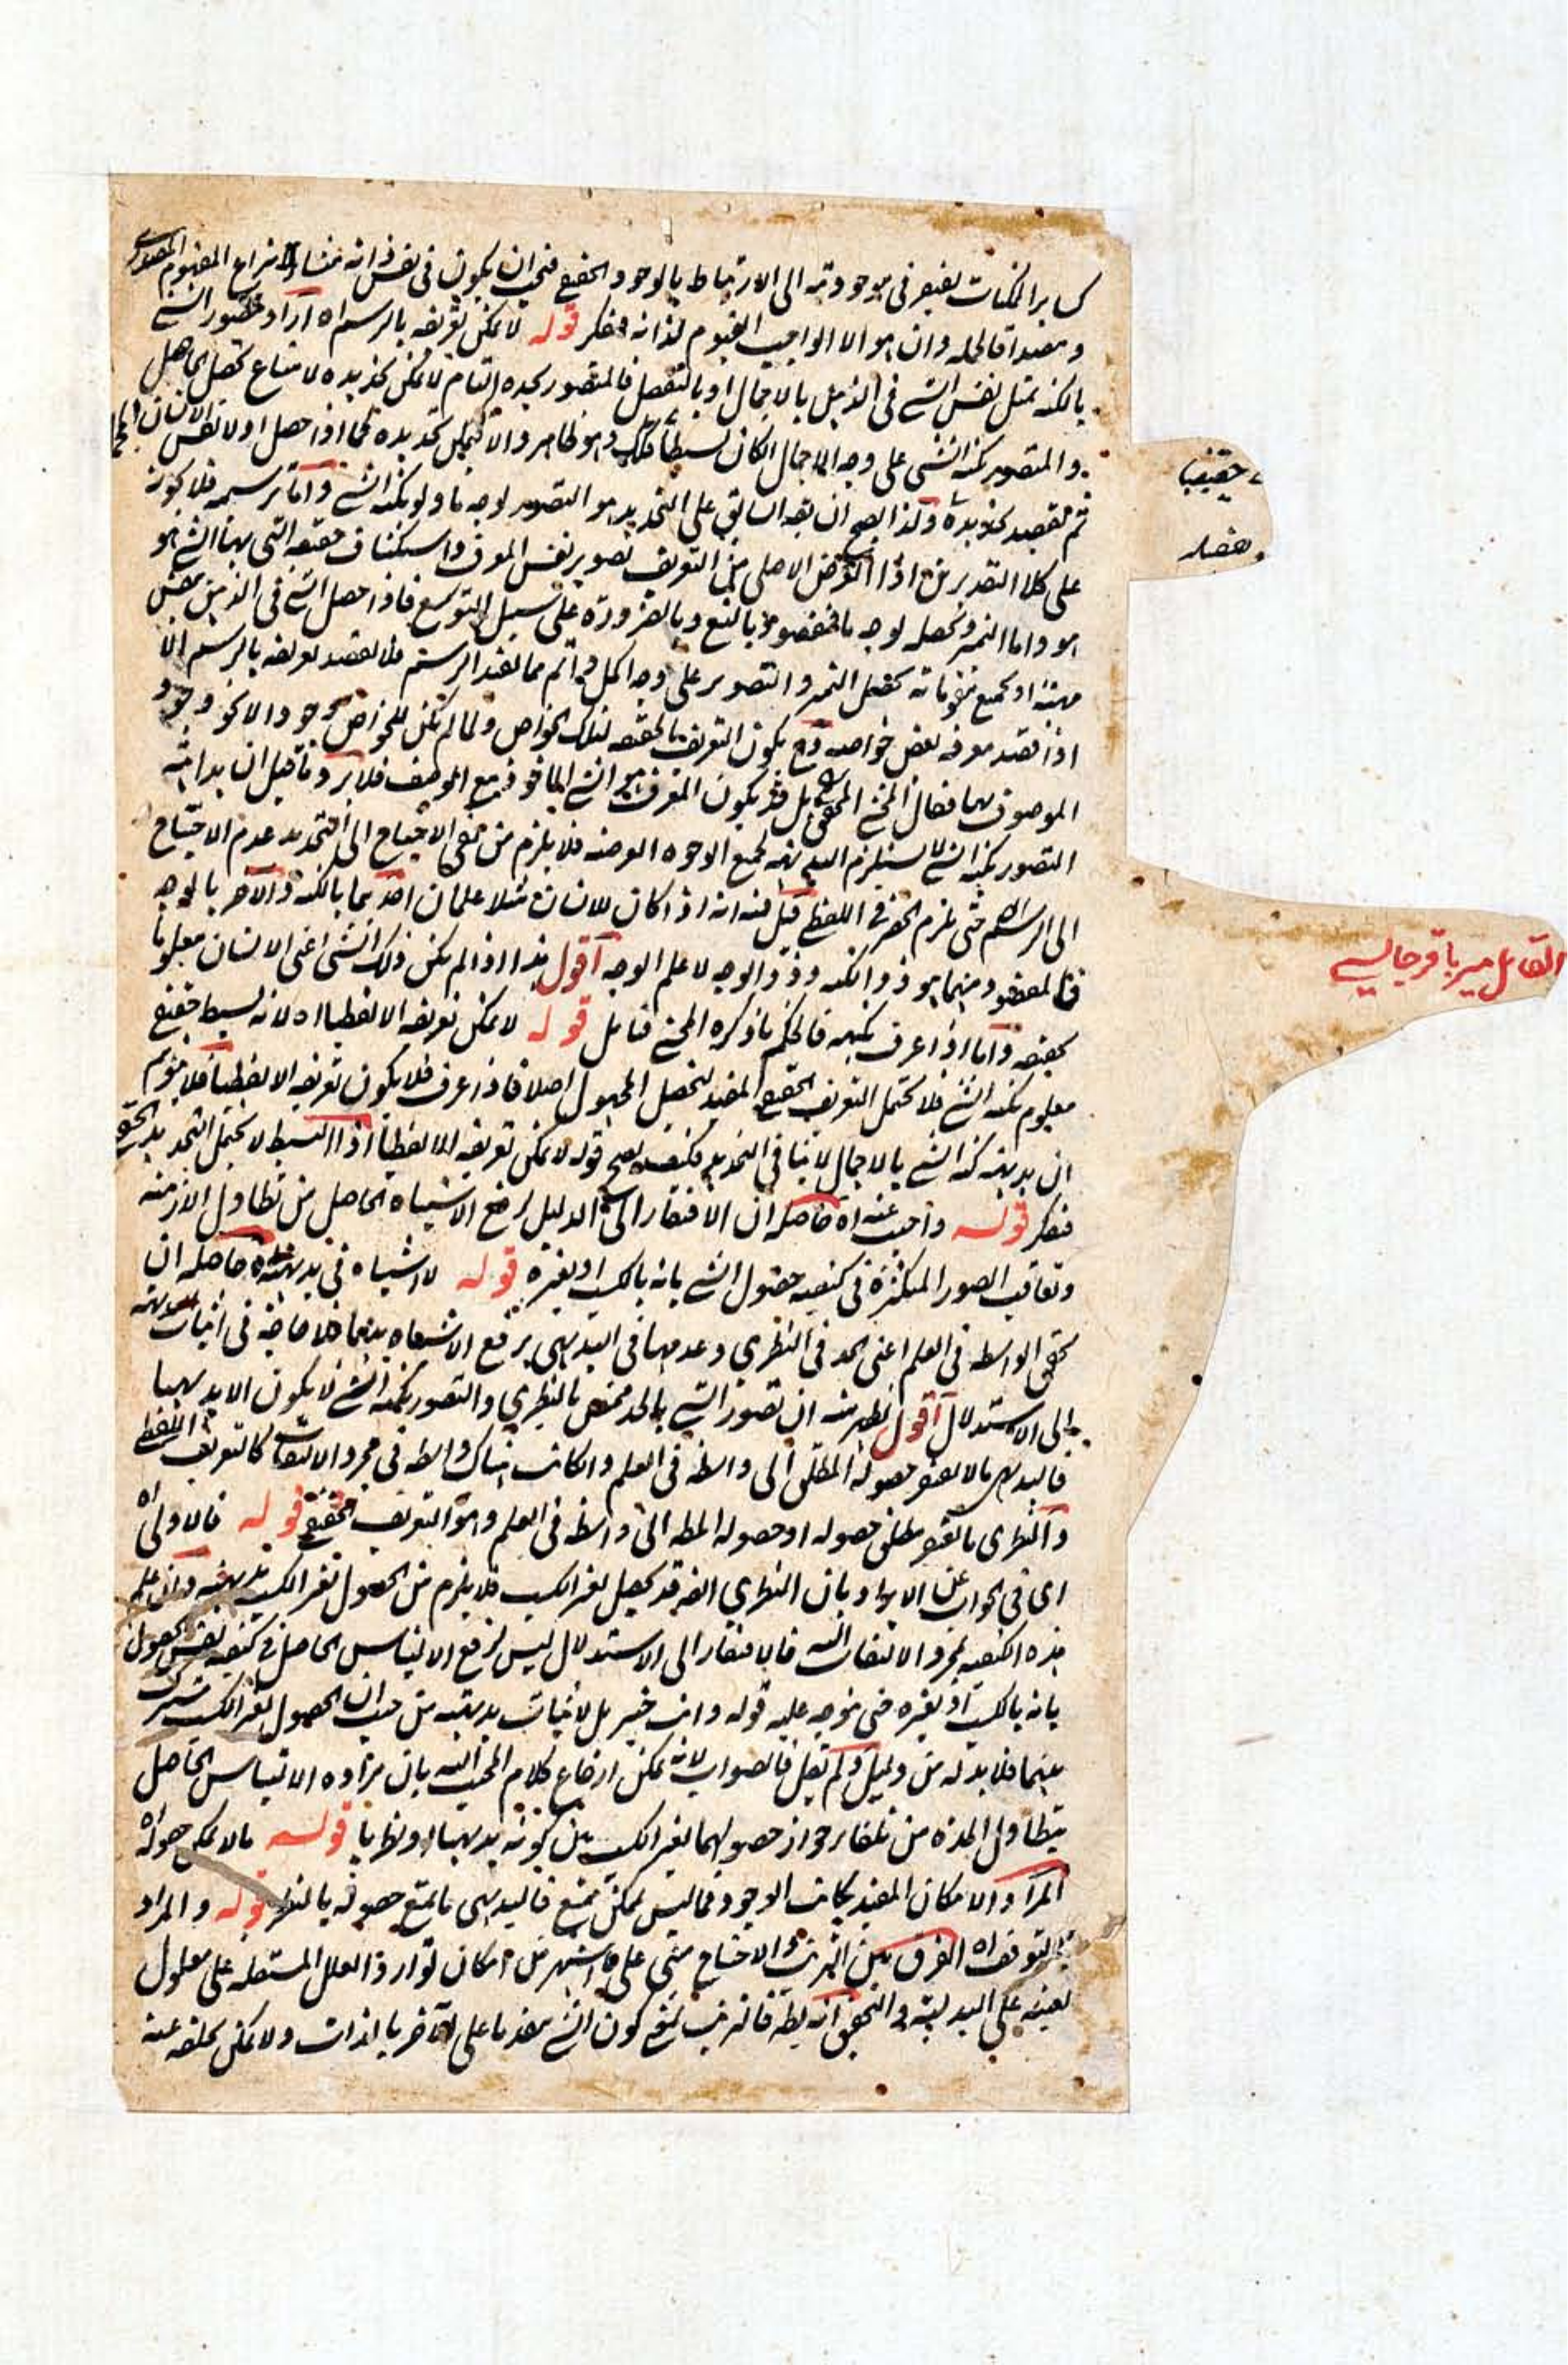 كسائر الممكنات يفتقر فى موجوديته الى الارتباط بالوجود الحقيقى فيجب ان يكون فى نفس ذاته منشاء لانتزاع المفهوم المصدرى
ومصداقا لحمله وان هو الا الواجب القيوم لذاته فتفكر قوله لا يمكن تعريفه بالرسم اه اراد بتصور الشئ
بالكنه تمثل نفس الشئ فى الذهن بالاجمال او بالتفصيل فالمتصور بحده التام لا يمكن تحديده لامتناع تحصيل الحاصل
والمتصور بكنه الشئ على وجه الاجمال ان كان بسيطا فكذلك وهو ظاهر والا فيمكن تحديده كما اذا حصل اولا نفس الانسان
ثم يقصد تحديده ولذا يصح ان يقال السابق على التحديد هو التصور بوجه ما ولو بكنه الشئ واما ترسيمه فلا يكون
على كلا التقديرين اذ الغرض الاصلى من التعريف تصوير نفس المعرف واستكشاف حقيقته التى بها الشئ هو
هو واما التميز وتحصيله بوجه ما فمقصود بالتبع وبالضرورة على سبيل التوسع فاذا حصل الشئ فى الذهن بنفس
مهيته او بجميع مقوماته تحصل التميز والتصوير على وجه اكمل واتم مما يفيد الرسم فلا يقصد تعريفه بالرسم الا
اذا قصد معرفة بعض خواصه وح يكون التعريف بالحقيقة لتلك الخواص ولما لم يكن للخواص وجود الا نحو وجود
الموصوف بها فقال المحشى المحقق بل قد يكون المعرف هو الشئ الماخوذ مع الوصف فلا يرد ما قيل ان بداهة
التصور بكنه الشئ لا يستلزم البديهة لجميع الاوجه العرضية فلا يلزم من نفى الاحتياج الى التحديد عدم الاحتياج
الى الرسم حتى يلزم الحصر فى اللفظى قيل فيه انه اذا كان للانسان مثلا علمان احدهما بالكنه والاخر بالوجه
فالمقصود منهما هو ذو الكنه وذو الوجه لا علم الوجه اقول هذا اذا لم يكن ذلك الشئ اعنى الانسان معلوما
بحقيقته واما اذا عرف بكنهه فالحكم ما ذكره المحشى فتامل قوله لا يمكن تعريفه الا لفظيا اه لانه بسيط حقيقى
معلوم بكنه الشئ فلا يحتمل التعريف الحقيقى المفيد لتحصيل المجهول اصلا فاذا عرف فلا يكون تعريفه الا لفظيا فلا يتوهم
ان بديهة كنه الشئ بالاجمال لا ينافى التحديد فكيف يصح قوله لا يمكن تعريفه الا لفظيا اذ البسيط لا يحتمل التحديد
فتفكر قوله واجيب عنه اه حاصله ان الافتقار الى الدليل لرفع الاشتباه الحاصل من تطاول الازمنة
وتعاقب الصور المتكثرة فى كيفية حصول الشئ بانه بالكسب او بغيره قوله لا اشتباه فى بديهته اه حاصله ان
تحقق الواسطة فى العلم اعنى الحد فى النظرى وعدمها فى البديهى يرفع الاشتباه بينهما فلا حاجة فى اثبات بديهته
الى الاستدلال اقول يظهر منه ان تصور الشئ بالحد مختص بالنظرى والتصور بكنه الشئ لا يكون الا بديهيا
فالبديهى ما لا يفتقر حصوله المطلق الى واسطة فى العلم وان كانت هناك واسطة فى مجرد الالتفات كالتعريف اللفظى
والنظرى ما يفتقر مطلق حصوله او حصوله المطلق الى واسطة فى العلم وهو التعريف الحقيقى قوله فالاولى اه
اى فى الجواب عن الايراد بان النظرى ايضا قد يحصل بغير الكسب فلا يلزم من الحصول بغير الكسب بديهته وان علم
هذه الكيفية بمجرد الالتفات اليه فالافتقار الى الاستدلال ليس لرفع الالتباس الحاصل فى كيفية نفس الحصول
بانه بالكسب او بغيره حتى يتوجه عليه قوله وانت خبير بل لاثبات بديهته من حيث ان الحصول بغير الكسب مشترك
بينهما فلا بد له من دليل ولم يقل فالصواب لانه يمكن ارجاع كلام المجيب اليه بان مراده الالتباس الحاصل
بتطاول المدة من تلقاء جواز حصولهما بغير الكسب من كونه بديهيا او نظريا قوله ما لا يمكن حصوله اه
المراد الامكان المقيد بجانب الوجود فما ليس بممكن ممتنع فالبديهى ما يمتنع حصوله بالنظر قوله والمراد
بالتوقف اه الفرق بين الترتب والاحتياج مبنى على ما اشتهر من امكان توارد العلل المستقلة على معلول
بعينه على البدلية والتحقيق انه يطه فالترتب يقتضى كون الشئ مقدما على الآخر بالذات ولا يمكن تخلفه عنه
حقيقيا
القائل مير باقر جاليسى